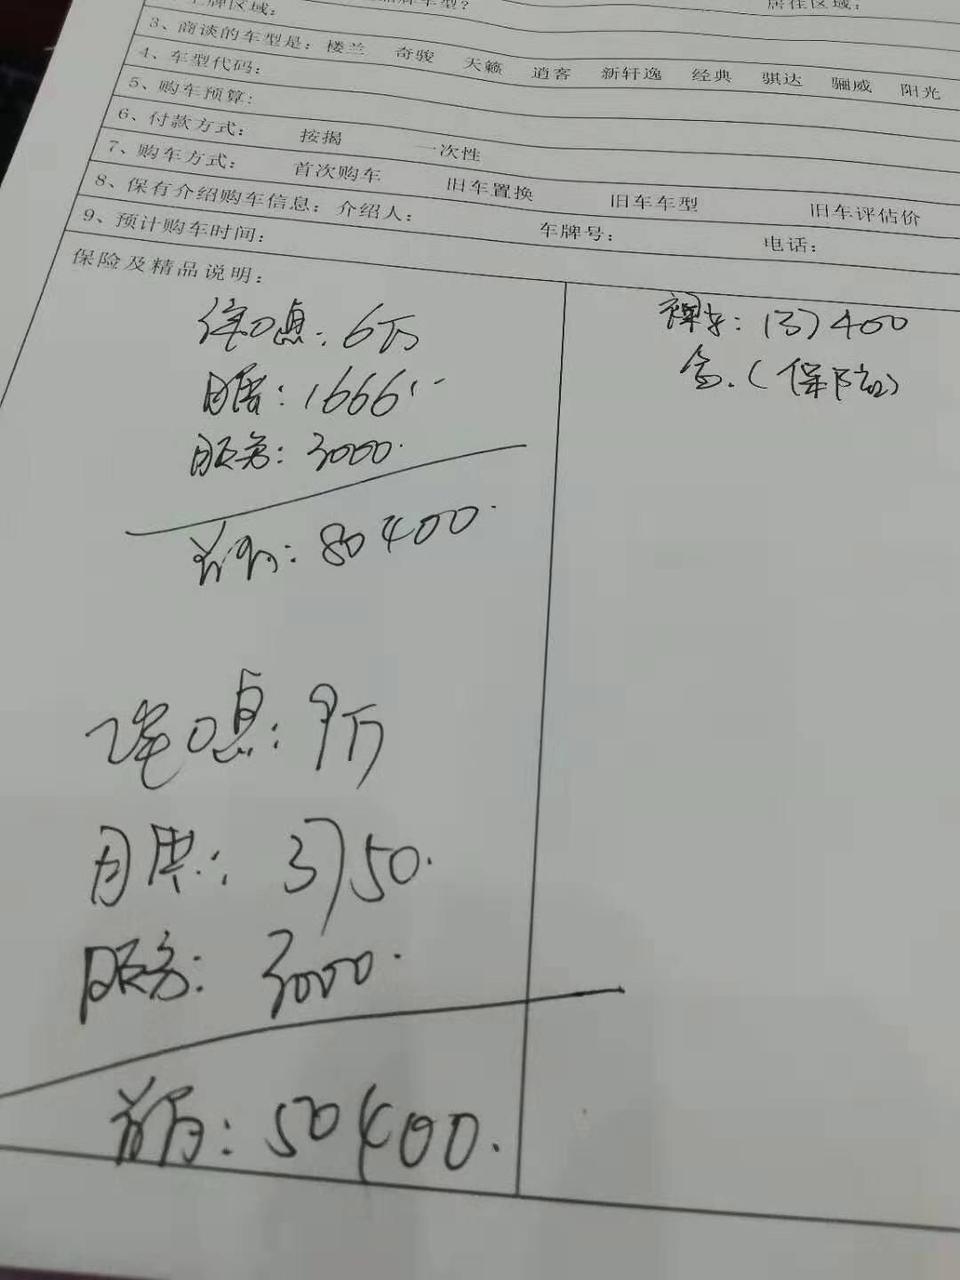 牌区域：
牌车型？
居住区域：
3、商谈的车型是：楼兰 奇骏 天籁 逍客 新轩逸 经典 骐达 骊威 阳光
4、车型代码：
5、购车预算：
6、付款方式： 按揭 一次性
7、购车方式： 首次购车 旧车置换 旧车车型 旧车评估价
8、保有介绍购车信息：介绍人： 车牌号： 电话：
9、预计购车时间：
保险及精品说明：
6万
月供：1666
服务：3000.
首付：80400.
9万
月供：3750.
服务：3000.
首付：50400.
裸车：137400
含.（保险）